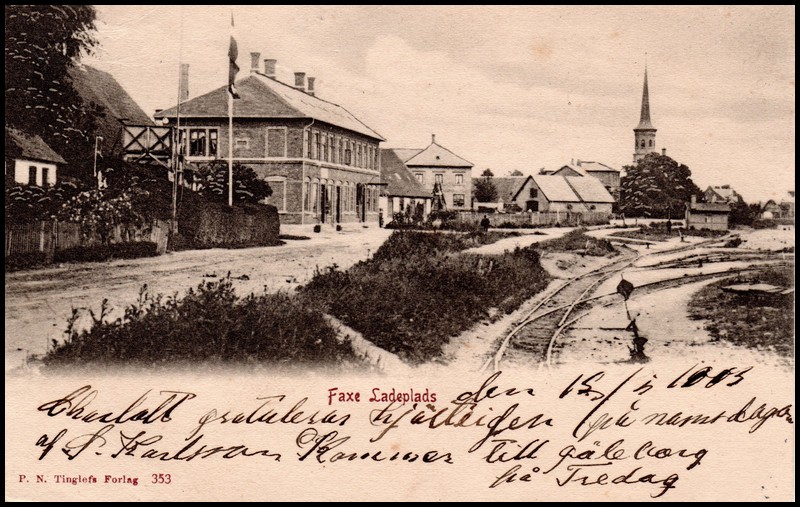 Faxe Ladeplads den 12/5 1903
Charlott gratuleras hjärtligen på namsdagen
af S. Karlsson Kommer till gäleborg
på Fredag
P. N. Tinglefs Forlag 353